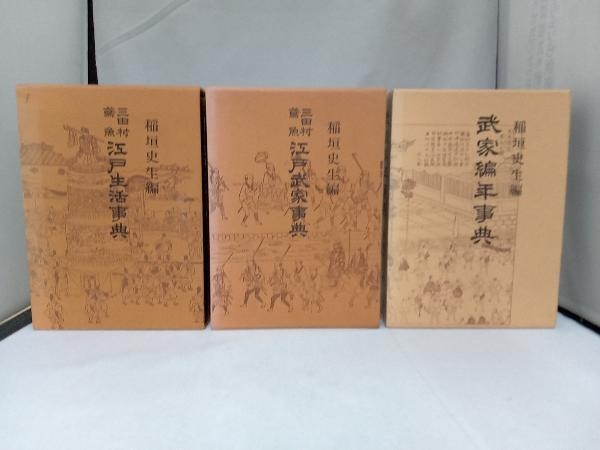 三田村
鳶魚
江戸生活事典
稲垣史生編
三田村
鳶魚
江戸武家事典
稲垣史生編
武家編年事典
稲垣史生編